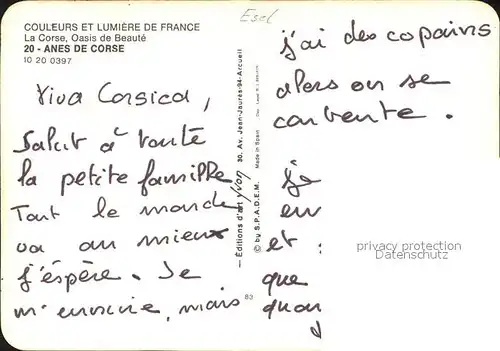 COULEURS ET LUMIÈRE DE FRANCE
La Corse, Oasis de Beauté
20 - ANES DE CORSE
10 20 0397
Viva Corsica,
Salut à toute
la petite famille
Tout le monde
va au mieux
j'éspère. Je
m'ennuie, mais
Esel
— Editions d'art yvon 30, Av. Jean-Jaurès-94-Arcueil
© by S.P.A.D.E.M. Made in Spain
83
j'ai des copains
alors on se
contente.
je
en
et :
que
quan
privacy protection
Datenschutz